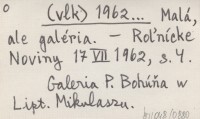 (vlk) 1962... Malá,
ale galéria. - Roľnícke
Noviny 17 VII 1962, s. 4.
Galeria P. Bohúňa v
Lipt. Mikulaszu.